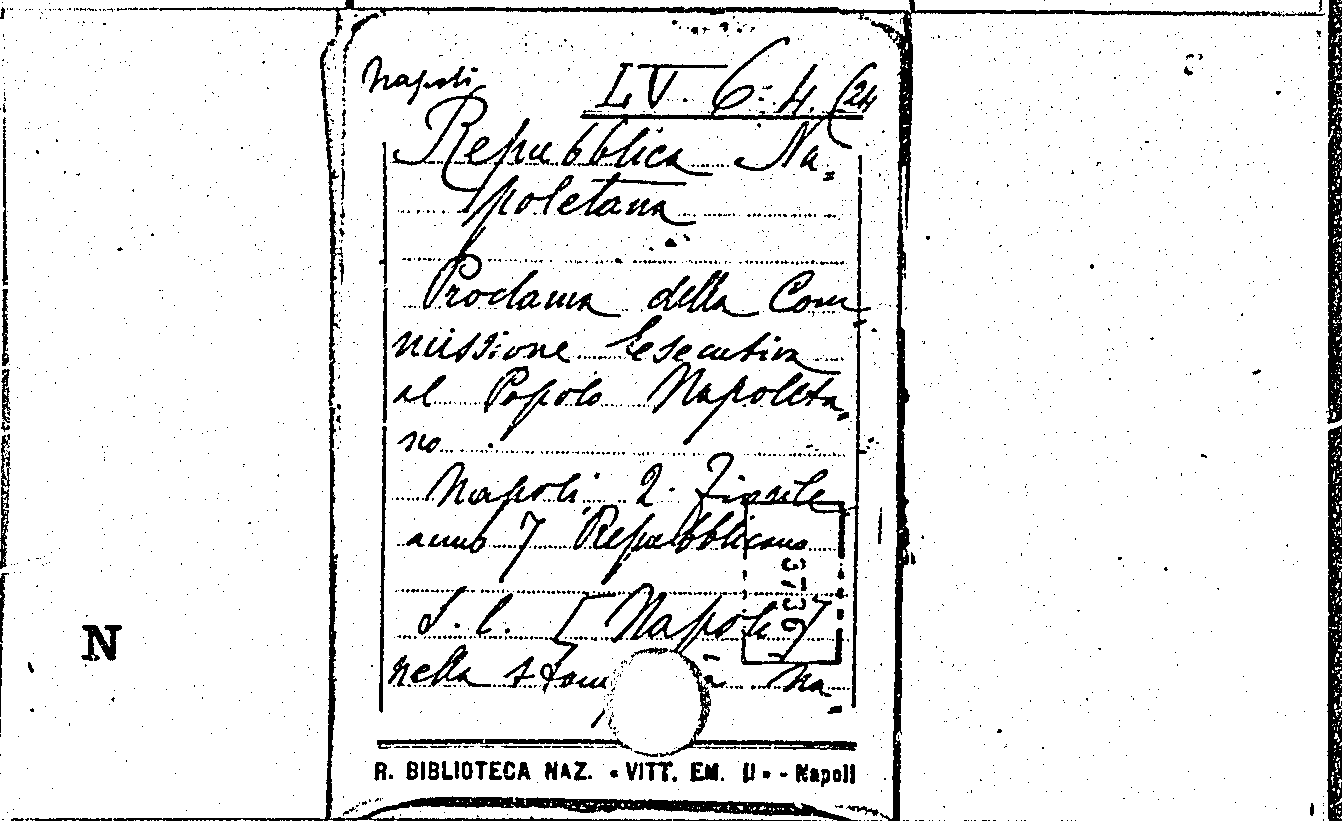 Napoli
LV. 6. 4. (24
Repubblica Na-
poletana
Proclama della Com
missione Esecutiva
al Popolo Napoleta-
no
Napoli 2. Fiorile
anno 7 Repubblicano
S. l. [Napoli]
nella Na-
3736
N
R. BIBLIOTECA NAZ. « VITT. EM. II » - Napoli